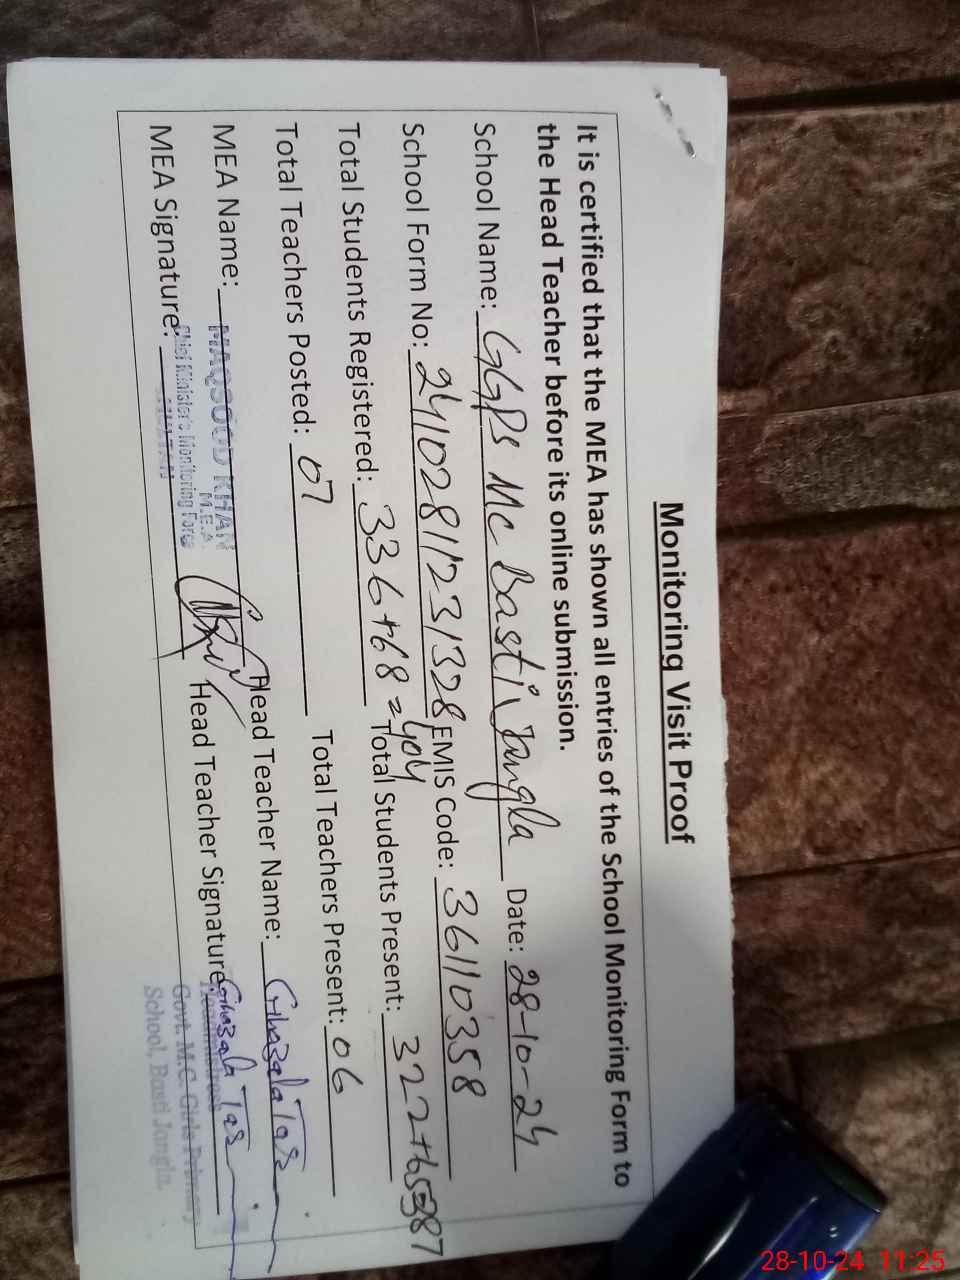 Monitoring Visit Proof
It is certified that the MEA has shown all entries of the School Monitoring Form to
the Head Teacher before its online submission.
School Name: GGPS Mc Basti Jangla Date: 28-10-24
School Form No: 24102811231328 EMIS Code: 36110358
Total Students Registered: 336+68=404 Total Students Present: 322+65=387
Total Teachers Posted: 07 Total Teachers Present: 06
MEA Name: MAQSOOD KHAN Head Teacher Name: Ghazala Tas
M.E.A
MEA Signature: Head Teacher Signature: Ghazala Tas
Chief Minister's Monitoring Force
Headmistress
Govt. M.C. Girls Primary
School, Basti Jangla.
28-10-24 11:25